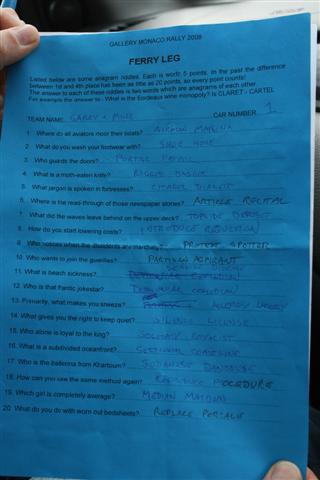 GALLERY MONACO RALLY 2008
FERRY LEG
Listed below are some anagram riddles. Each is worth 5 points. In the past the difference
between 1st and 4th place has been as little as 20 points, so every point counts!
The answer to each of these riddles is two words which are anagrams of each other.
For example the answer to - What is the Bordeaux wine monopoly? Is CLARET - CARTEL
TEAM NAME: CAR NUMBER 1
1 Where do all aviators moor their boats? AIRMAN MARINA
2 What do you wash your footwear with? SHOE HOSE
3 Who guards the doors? PORTAL PATROL
4 What is a moth-eaten knify?
5 What jargon is spoken in fortresses? CITADEL DIALECT
6 Where is the read-through of those newspaper stories? ARTICLE RECITAL
7 What did the waves leave behind on the upper deck? TOPSIDE DEPOSIT
8 How do you start lowering costs? INTRODUCE REDUCTION
9 Who notices when the dissidents are marching? PROTEST SPOTTER
10 Who wants to join the guerillas? PARTISAN ASPIRANT
11 What is beach sickness? SEASIDE DISEASE
12 Who is that frantic jokestar? COMEDIAN
13 Primarily, what makes you sneeze? ALLERGY LARGELY
14 What gives you the right to keep quiet? SILENCE LICENSE
15 Who alone is loyal to the king? SOLITARY ROYALIST
16 What is a subdivided oceanfront? SECTIONAL COASTLINE
17 Who is the ballerina from Khartoum? SUDANESE DANSEUSE
18. How can you use the same method again? REPRODUCE PROCEDURE
19. Which girl is completely average? MEDIAN MAIDEN
20 What do you do with worn out bedsheets? REPLACE PERCALE